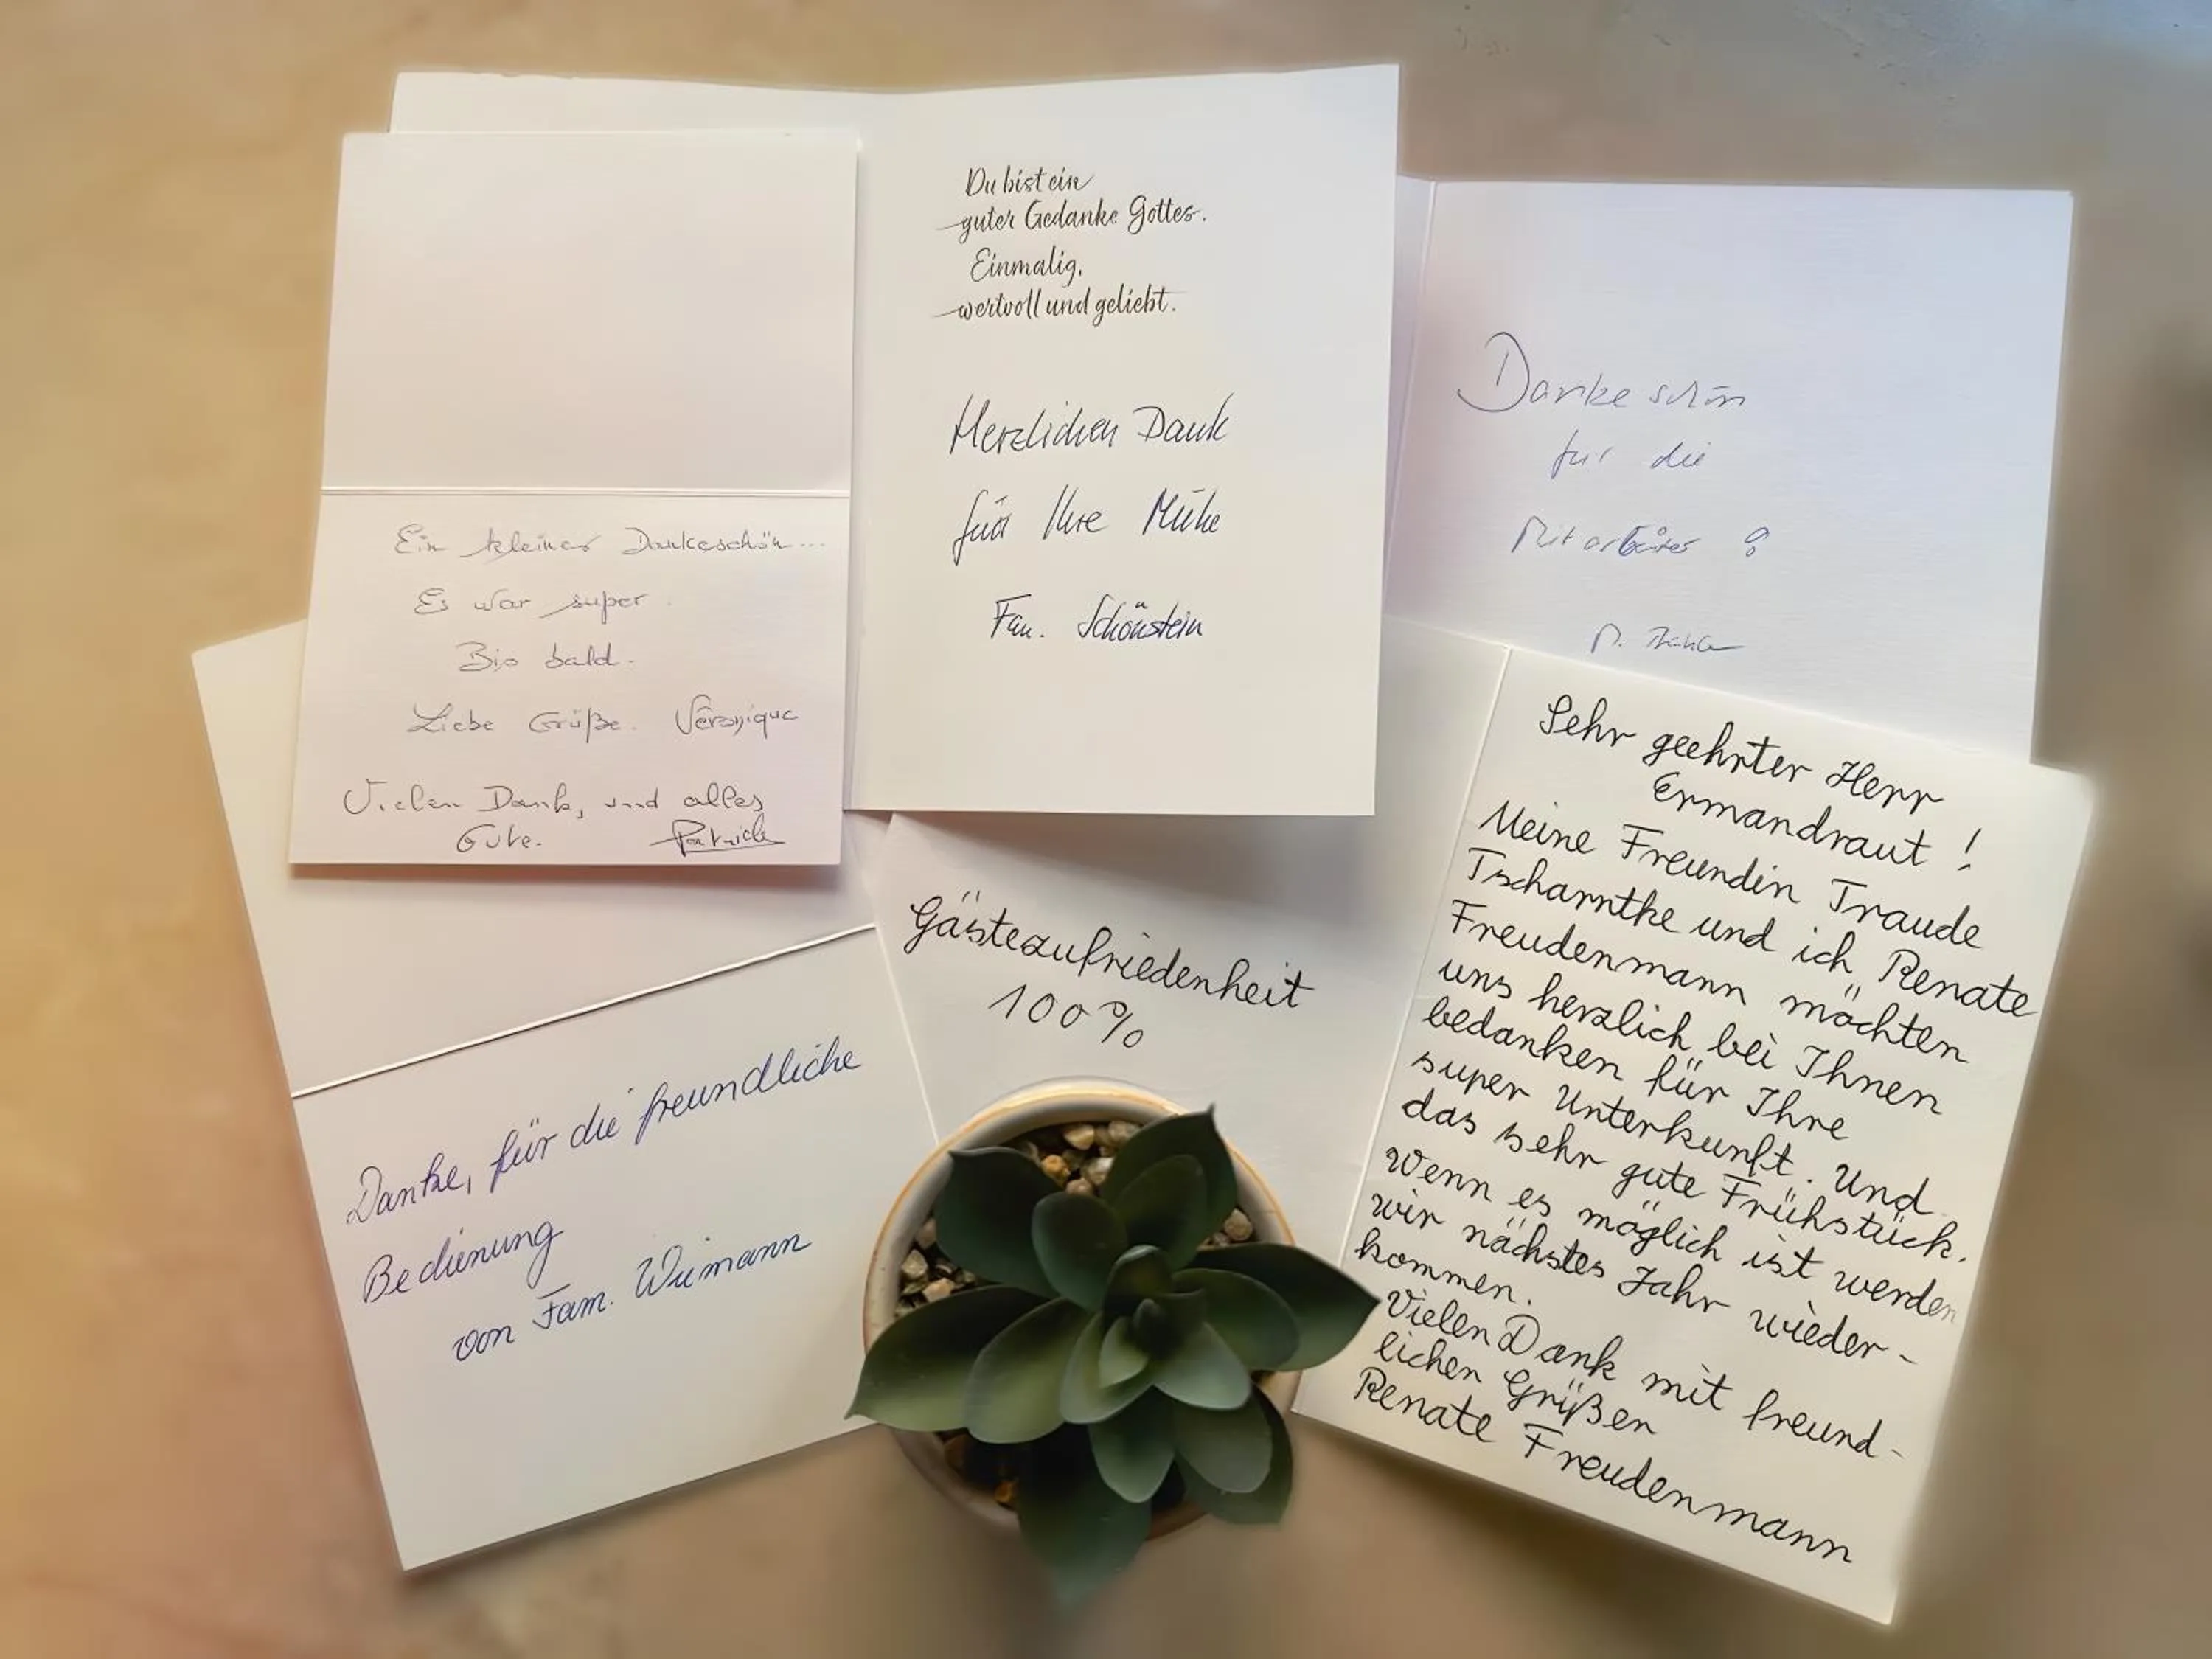 Ein kleines Dankeschön...
Es war super.
Bis bald.
Liebe Grüße. Véronique
Vielen Dank, und alles
Gute. Patrick
Du bist ein
guter Gedanke Gottes.
Einmalig,
wertvoll und geliebt.
Herzlichen Dank
für Ihre Mühe
Fam. Schönstein
Dankeschön
für die
Mitarbeiter
Danke, für die freundliche
Bedienung
von Fam. Wiemann
Gästezufriedenheit
100%
Sehr geehrter Herr
Ermandraut!
Meine Freundin Traude
Tscharntke und ich, Renate
Freudenmann möchten
uns herzlich bei Ihnen
bedanken für Ihre
super Unterkunft. Und
das sehr gute Frühstück.
Wenn es möglich ist werden
wir nächstes Jahr wieder-
kommen.
Vielen Dank mit freund-
lichen Grüßen
Renate Freudenmann